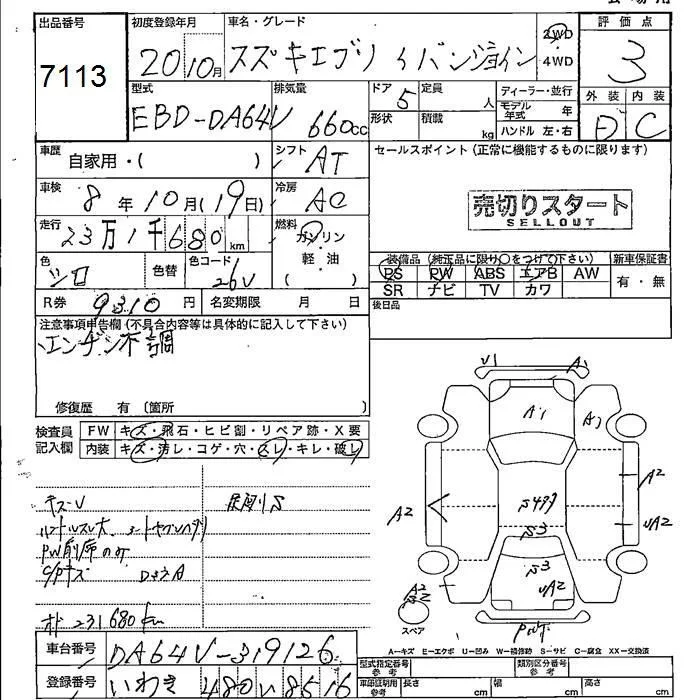 出品番号
7113
初度登録年月
20 10月
車名・グレード
スズキエブリィバンジョイン
2WD
4WD
評価点
3
外装 内装
D C
型式
EBD-DA64V
排気量
660cc
ドア 5
形状
定員 人
積載 kg
ディーラー・並行
モデル年式 年
ハンドル 左・右
車歴
自家用・( )
シフト
AT
セールスポイント(正常に機能するものに限ります)
売切りスタート
SELLOUT
車検
8年10月(19日)
冷房
AC
走行
23万1千680km
燃料
ガソリン
軽・油
( )
色
シロ
色替
色コード
26V
装備品(純正品に限り○をつけて下さい)
PS PW ABS エアB AW
SR ナビ TV カワ
新車保証書
有・無
R券 9310円
名変期限 月 日
後日品
注意事項申告欄(不具合内容等は具体的に記入して下さい)
エンジン不調
修復歴 有 (箇所 )
検査員
記入欄
FW キズ・飛石・ヒビ割・リペア跡・X要
内装 キズ・汚レ・コゲ・穴・スレ・キレ・破レ
PW前席のみ
オド 231680km
U1 A1
A1 A1
A2
A2
UA2
S3
S3
UA2
A2
S2
スペア
A-キズ E-エクボ U-凹み W-補修跡 S-サビ C-腐食 XX-交換済
車台番号
DA64V-319126
登録番号
いわき 480 い 8516
型式指定番号
参考
類別区分番号
参考
車庫証明用
参考
長さ cm
幅 cm
高さ cm